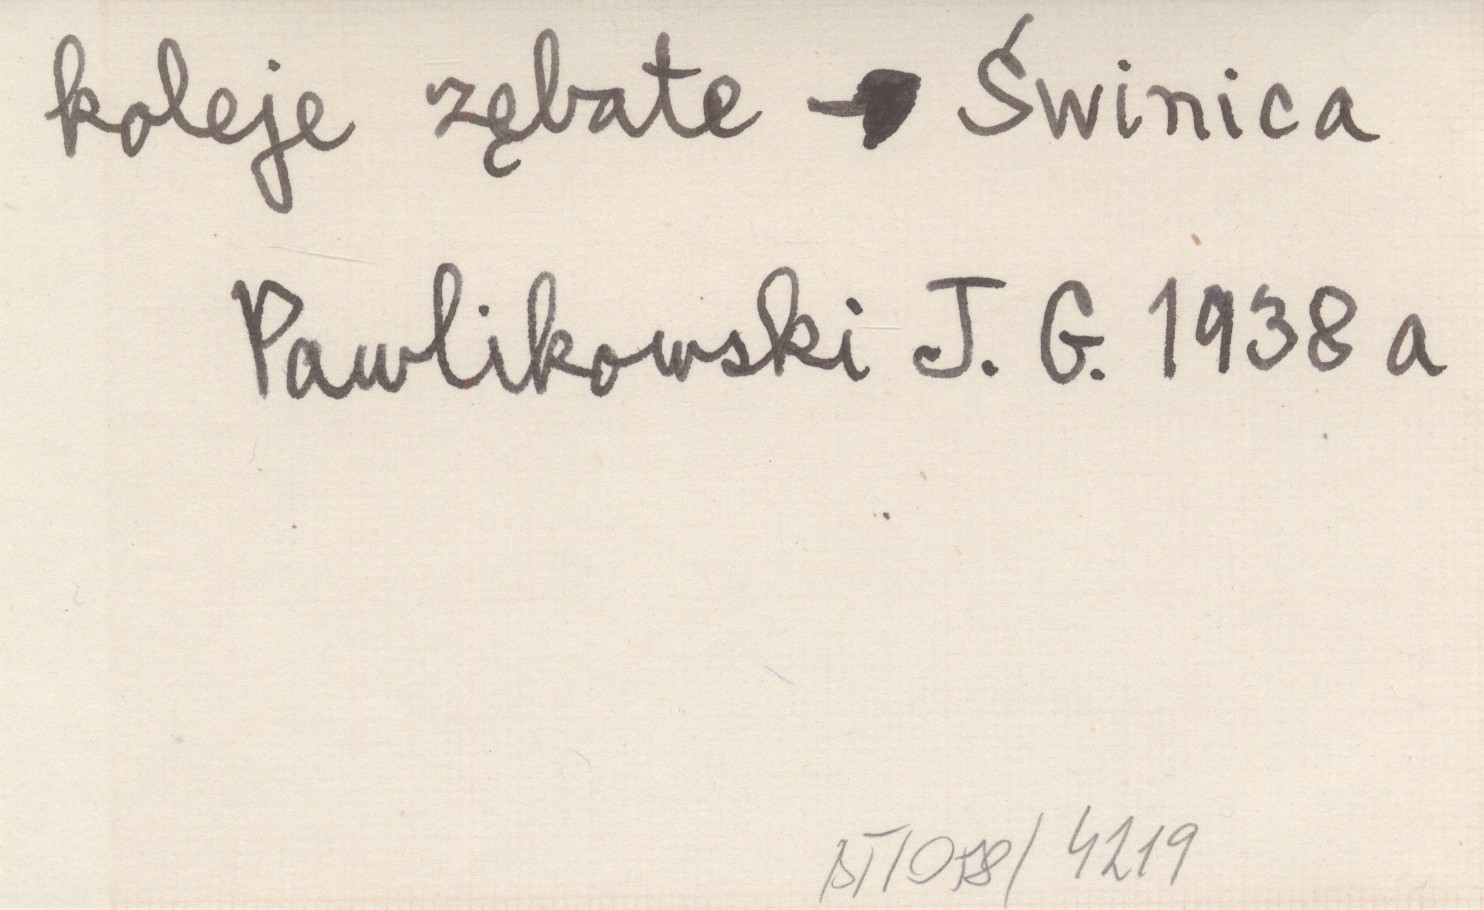 koleje zębate → Świnica
Pawlikowski J. G. 1938 a
4219